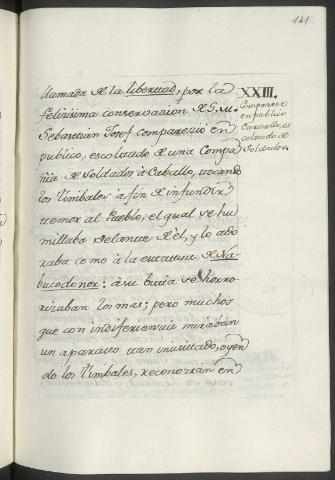 141
llamada de la libertad, por la
felicissima conservazion de S. M.
Sebastian Josef comparezió en
publico, escoltado de una Compa
ñia de Soldados à Caballo, tocando
los timbales à fin de infundir
temor al Pueblo, el qual se hu
millaba delante de él, y lo ado
raba como à la estatua de Na-
bucodonor: à su vista se horro
rizaban los mas; pero muchos
que con indiferencia miraban
un aparato tan inusitado, oyen
do los timbales, reconozian en
XXIII.
Comparece
en publico
Carvallo, es
coltado de
Soldados.